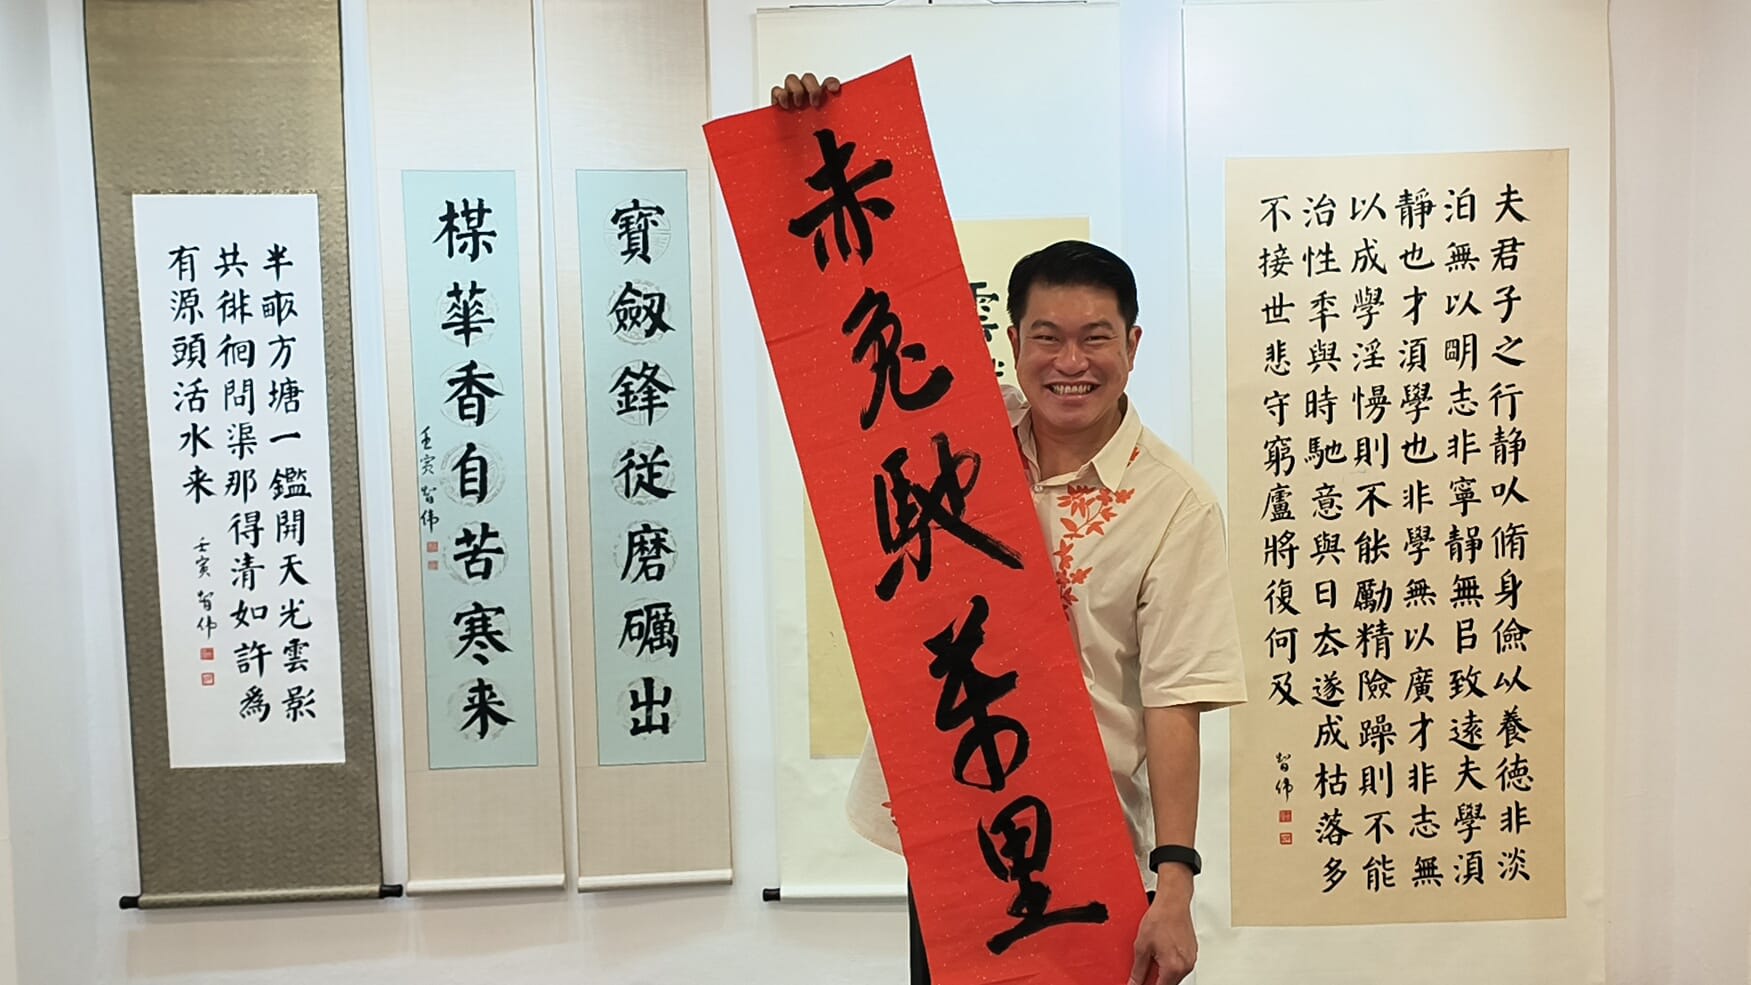 夫君子之行静以脩身儉以養德非淡
泊無以明志非寧静無以致遠夫學湏
靜也才湏學也非學無以廣才非志無
以成學淫慢則不能勵精險躁則不能
治性秊與時馳意與日去遂成枯落多
不接世悲守窮廬將復何及
智伟
赤兔馳萬里
寶劔鋒從磨礪出
楳華香自苦寒来
壬寅 智伟
半畝方塘一鑑開天光雲影
共徘徊問渠那得清如許為
有源頭活水来
壬寅 智伟